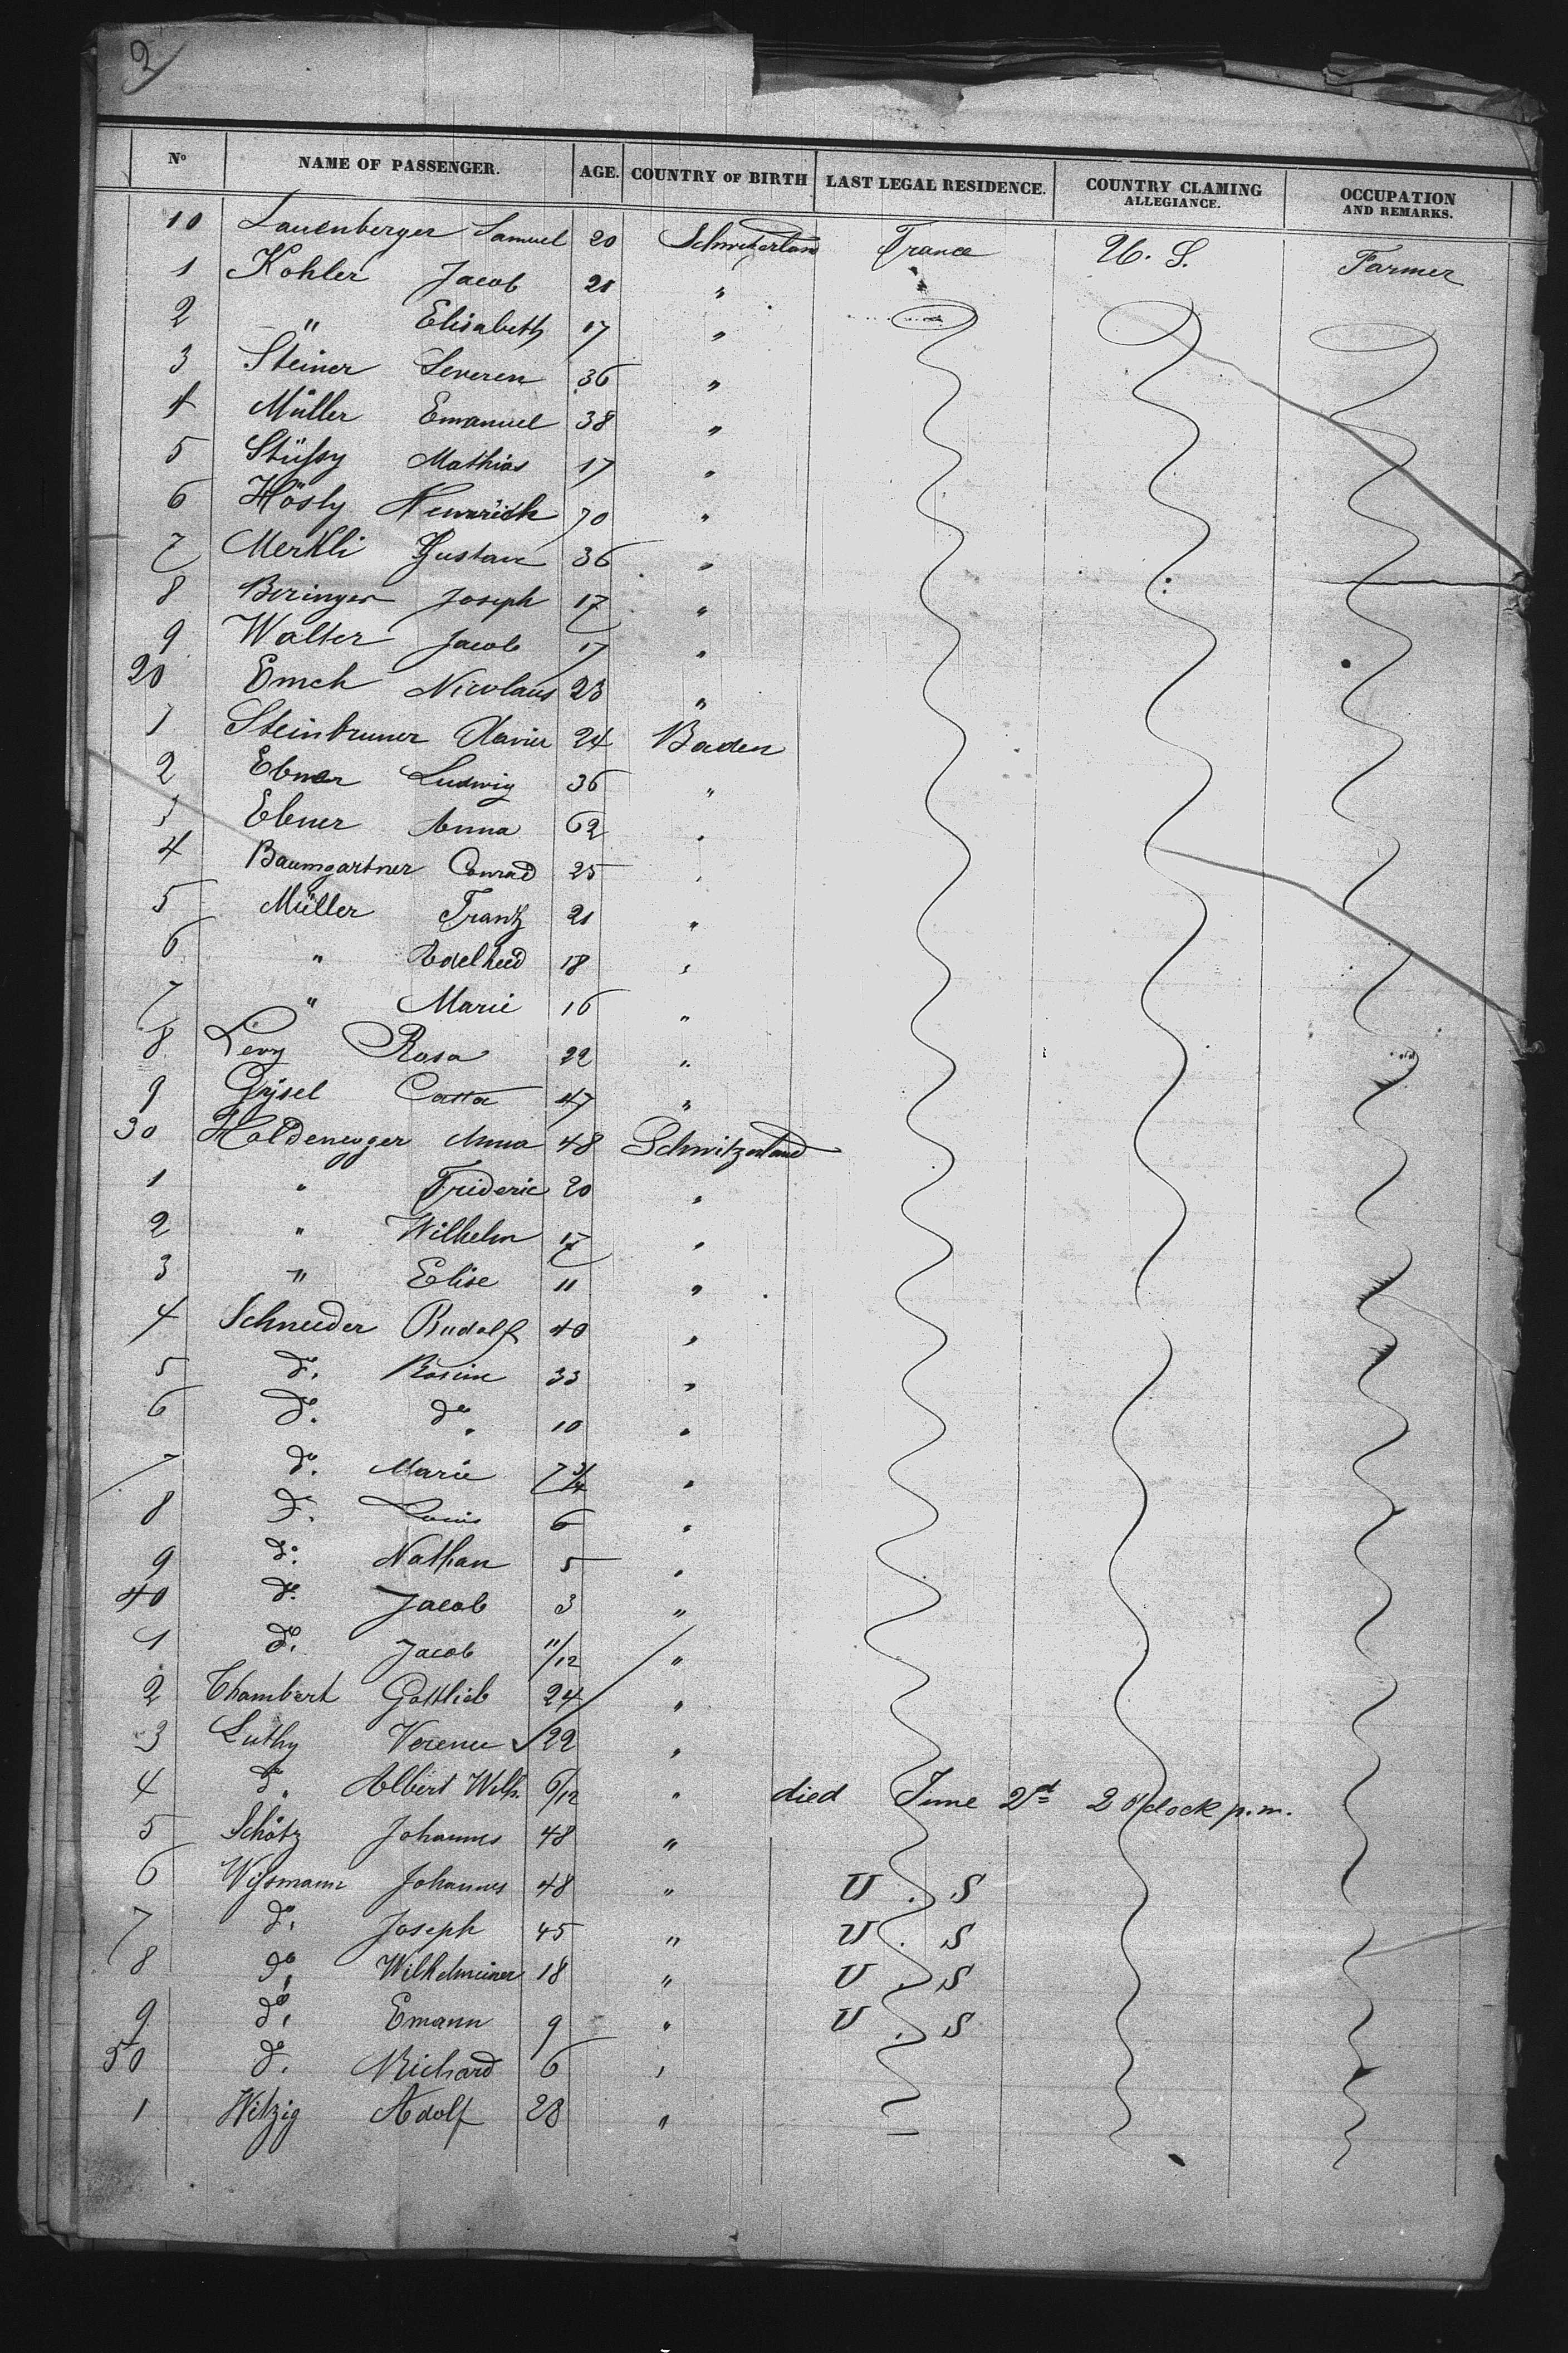 2
No NAME OF PASSENGER. AGE. COUNTRY OF BIRTH LAST LEGAL RESIDENCE. COUNTRY CLAMING ALLEGIANCE. OCCUPATION AND REMARKS.
10 Lauenberger Samuel 20 Schwitzerland France U. S. Farmer
1 Kohler Jacob 21 "
2 " Elisabeth 17 "
3 Steiner Severen 36 "
4 Müller Emanuel 38 "
5 Stüssy Mathias 17 "
6 Hösly Heinrich 70 "
7 Merkli Gustav 36 "
8 Beringer Joseph 17 "
9 Walter Jacob 17 "
20 Emch Nicolaus 23 "
1 Steinbruner Xavier 24 Baden
2 Ebner Ludwig 36 "
3 Ebner Anna 62 "
4 Baumgartner Conrad 25 "
5 Müller Frantz 21 "
6 " Adelheid 18 "
7 " Marie 16 "
8 Levy Rosa 22 "
9 Grysel 47 "
30 Holdenegger Anna 48 Schwitzerland
1 " Frideric 20 "
2 " Wilhelm 17 "
3 " Elise 11 "
4 Schneider Rudolf 40 "
5 do. Rosine 33 "
6 do. do. 10 "
7 do. Marie 7 3/4 "
8 do. Louis 6 "
9 do. Nathan 5 "
40 do. Jacob 3 "
1 do. Jacob 11/12 "
2 Chambert Gottlieb 24 "
3 Luthy Verene 22 "
4 do. Albert Wilh. 6/12 " died June 2d 2 o'clock p.m.
5 Schötz Johannes 48 "
6 Wissmann Johannes 48 " U. S
7 do. Joseph 45 " U. S
8 do. Wilhelminer 18 " U. S
9 do. Emann 9 " U. S
50 do. Richard 6 "
1 Witzig Adolf 28 "